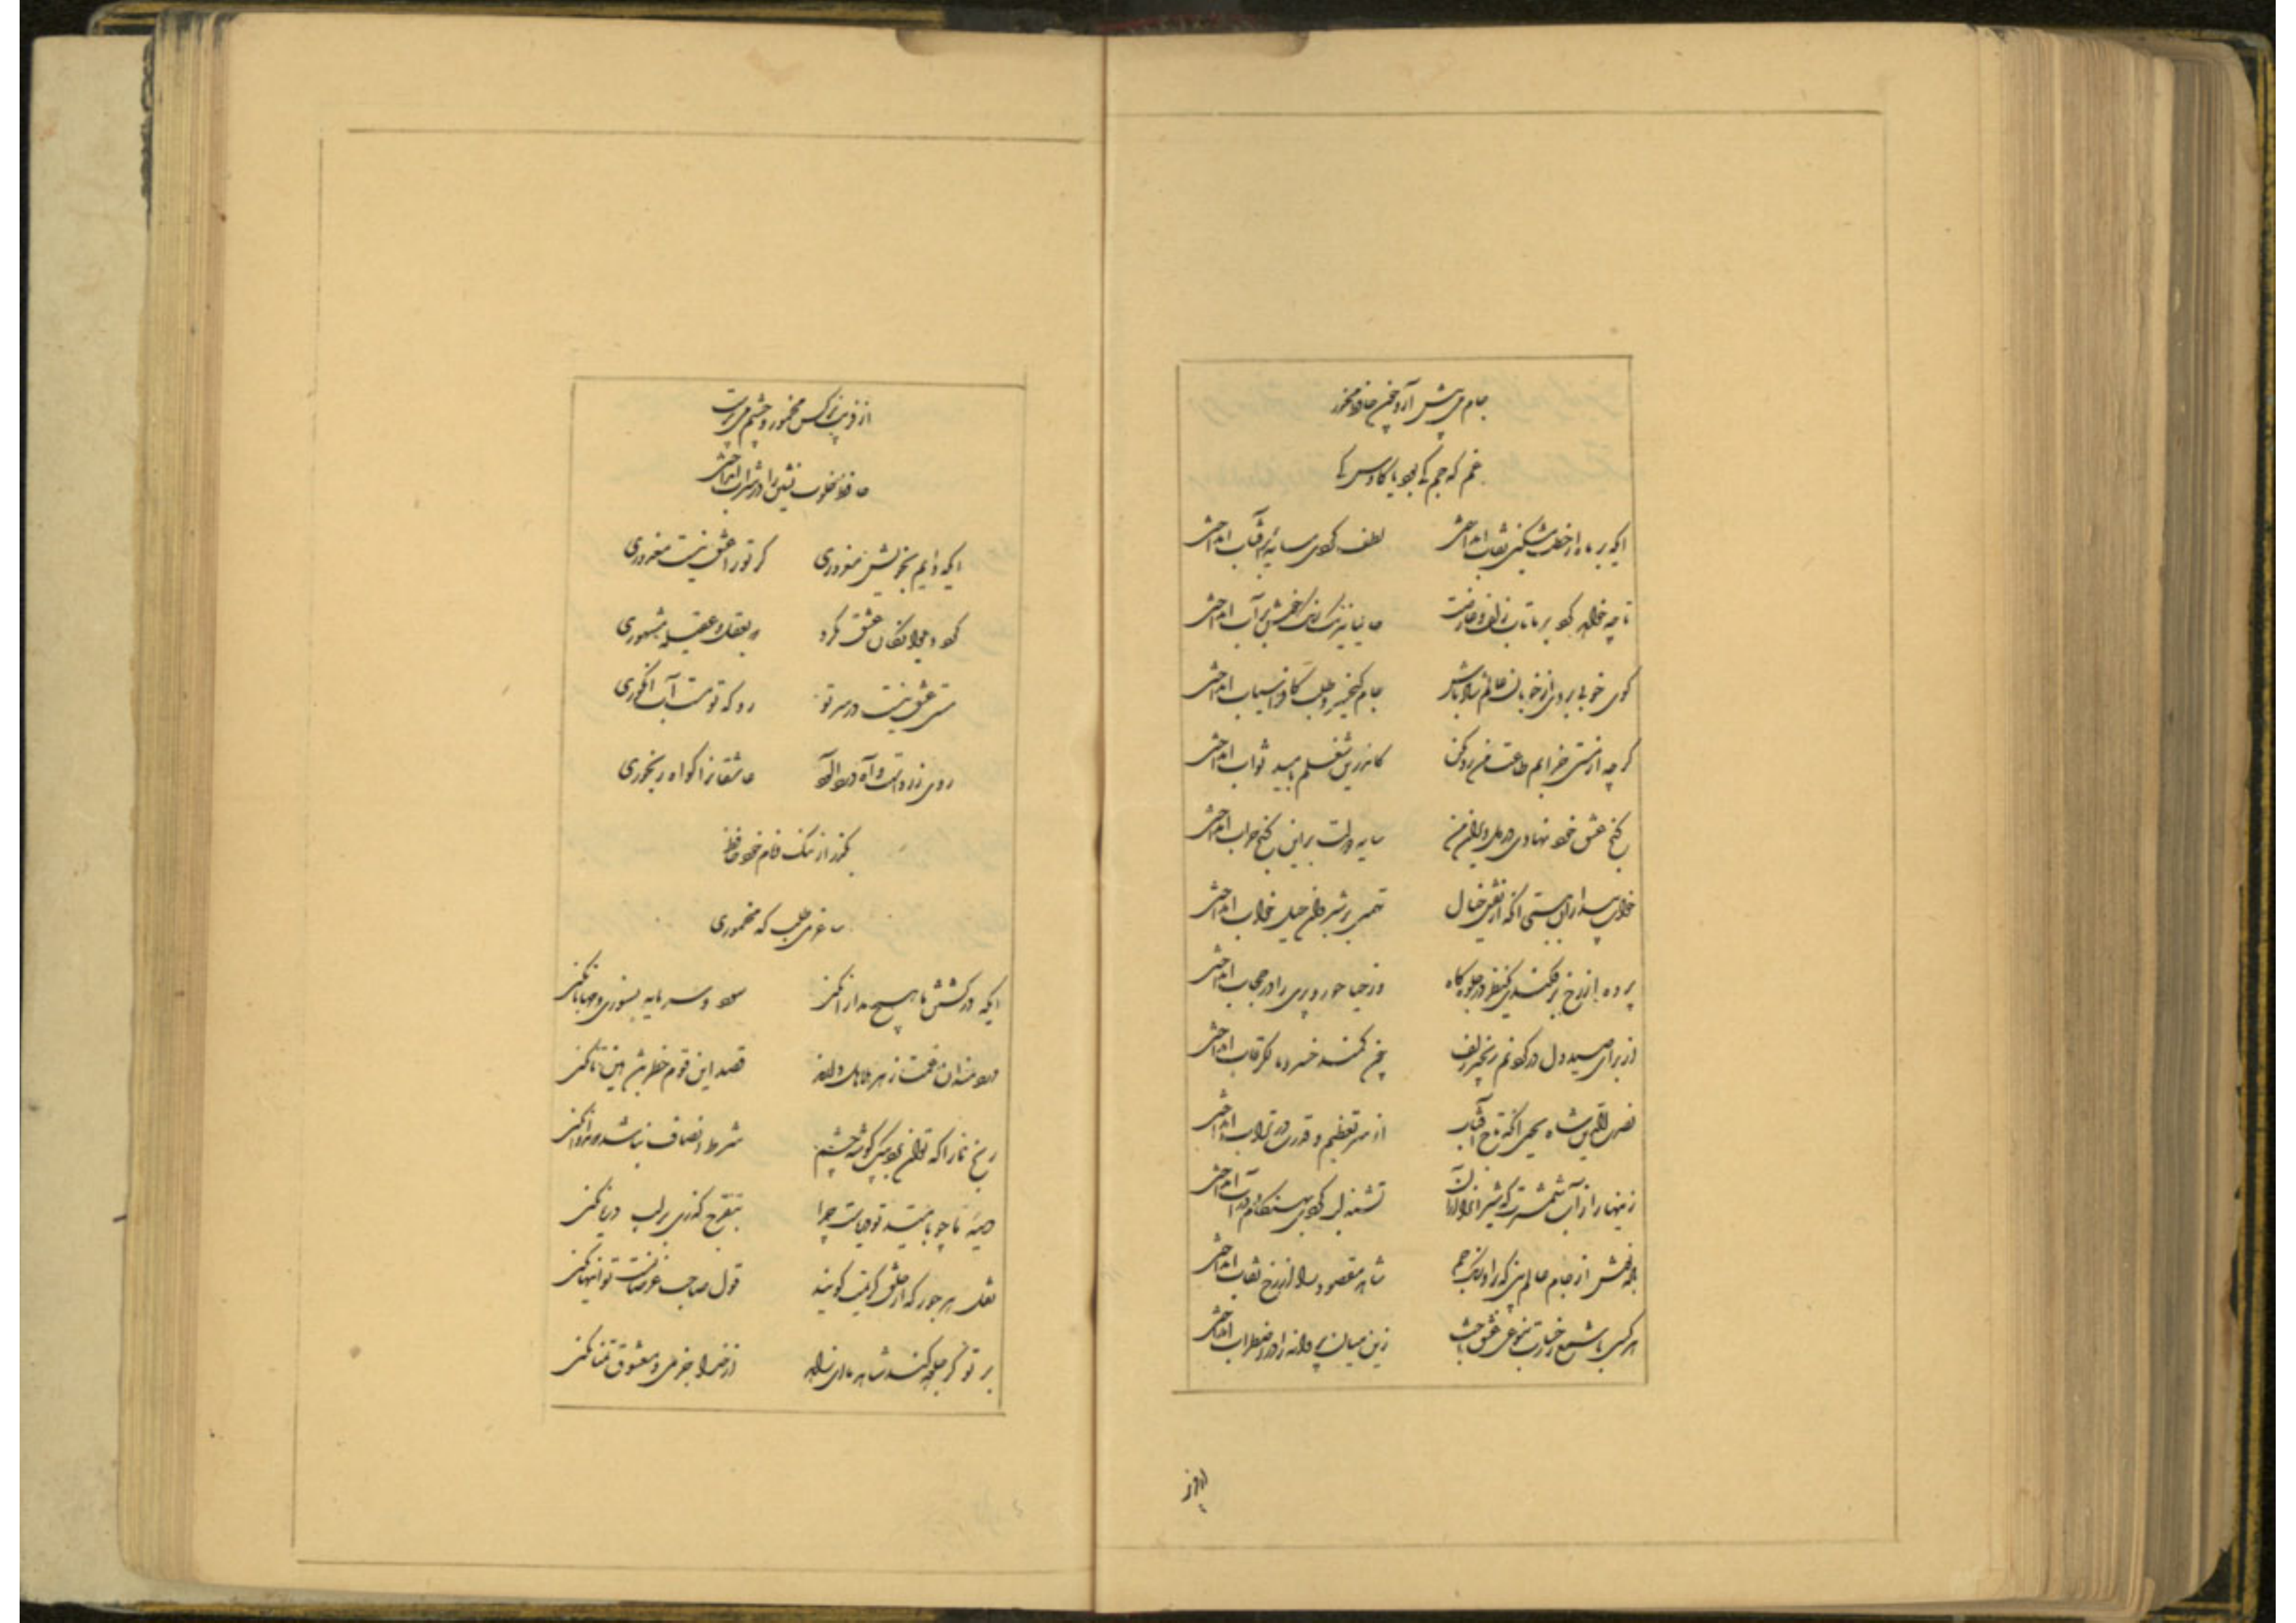 جام می پیش آر و چون حافظ مخور
غم که جم کی بود یا کاوس کی
ایکه بر ماه از خط مشکین نقاب انداختی لطف کردی سایهٔ بر آفتاب انداختی
تا چه خواهد کرد بر ما تاب زلف عارضت حالیا نیرنگ نقش خوش بر آب انداختی
گوی خوبی بردی از خوبان عالم شاد باش جام کیخسرو طلب کافراسیاب انداختی
گرچه از مستی خرابم طاعت من رد مکن کاندرین شغلم بامید ثواب انداختی
گنج عشق خود نهادی در دل ویران من سایه دولت برین کنج خراب انداختی
خواب بیداران ببستی وانگه از نقش خیال تهمتی بر شبروان خیل خواب انداختی
پرده از رخ برفکندی یکنظر در جلوه گاه وز حیا حور و پری را در حجاب انداختی
از برای صید دل در گردنم زنجیر زلف چون کمند خسرو مالک رقاب انداختی
نصرة الدین شاه یحیی آنکه تاج آفتاب از سر تعظیم و قدرت در تراب انداختی
زینهار از آب شمشیرت که شیران را از آن تشنه لب کردی و گردان را در آب انداختی
باده نوش از جام عالم بین که بر اورنگ جم شاهد مقصود را از رخ نقاب انداختی
هر کسی با شمع رخسارت بوجهی عشق باخت زین میان پروانه را در اضطراب انداختی
از فریب نرگس مخمور و چشم می پرست
حافظ خلوت نشین را در شراب انداختی
ایکه دایم بخویش مغروری گر تو را عشق نیست معذوری
گرد دیوانگان عشق مگرد که بعقل عقیله مشهوری
مستی عشق نیست در سر تو رو که تو مست آب انگوری
روی زردست و آه درد آلود عاشقانرا گواه رنجوری
بگذر از ننگ و نام خود حافظ
ساغر می طلب که مخموری
ایکه در کشتن ما هیچ مدارا نکنی سود و سرمایه بسوزی و محابا نکنی
دردمندان بلا زهر هلاهل دارند قصد این قوم خطر باشد هین تا نکنی
رنج ما را که توان برد بیک گوشه چشم شرط انصاف نباشد که مداوا نکنی
دیده ما چو بامید تو دریاست چرا بتفرج گذری بر لب دریا نکنی
نقل هر جور که از خلق کریمت گویند قول صاحب غرضانست تو اینها نکنی
بر تو گر جلوه کند شاهد ما ای زاهد از خدا جز می و معشوق تمنا نکنی